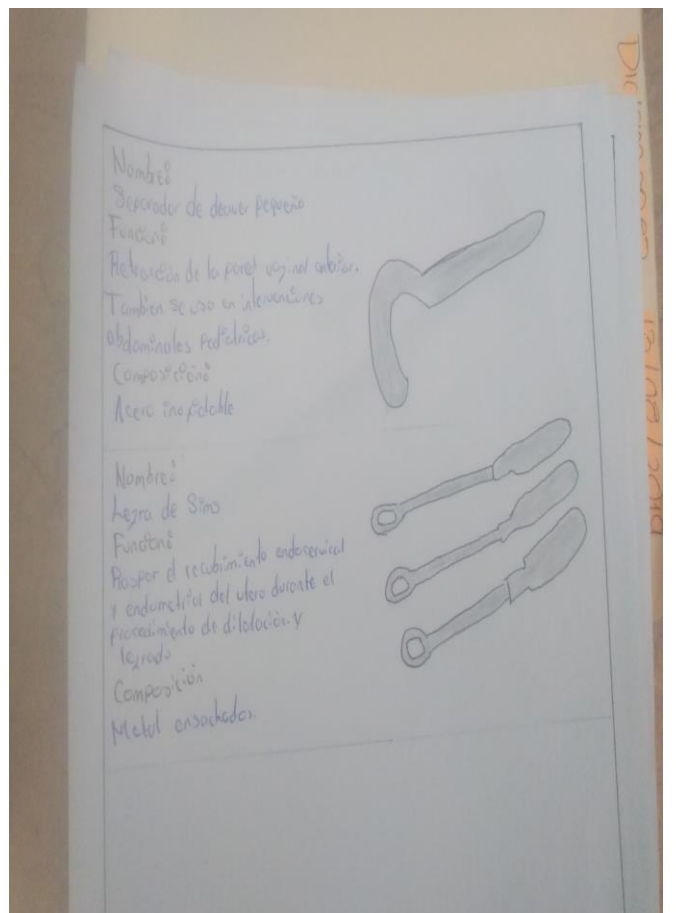 Nombre:
Separador de deaver pequeño
Función:
Retracción de la pared vaginal anterior.
Tambien se usa en intervenciones
abdominales pediatricas.
Composición:
Acero inoxidable
Nombre:
Legra de Sims
Función:
Raspar el recubrimiento endocervical
y endometrial del utero durante el
procedimiento de dilatación y
legrado
Composición
Metal